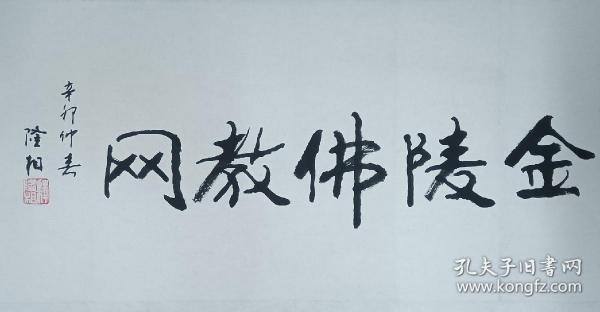 金陵佛教网
辛卯仲春
隆相
孔夫子旧书网
www.kongfz.com